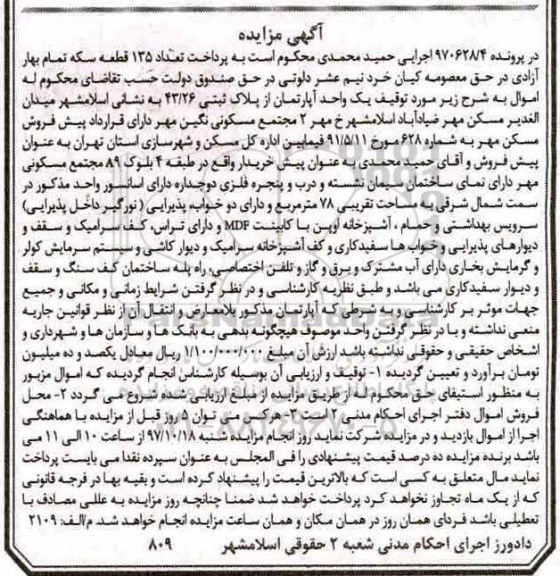 آگهی مزایده
در پرونده ۹۷۰۶۲۸/۴ اجرایی حمید محمدی محکوم است به پرداخت تعداد ۱۳۵ قطعه سکه تمام بهار
آزادی در حق معصومه کیان خرد نیم عشر دولتی در حق صندوق دولت حسب تقاضای محکوم له
اموال به شرح زیر مورد توقیف یک واحد آپارتمان از پلاک ثبتی ۴۳/۲۶ به نشانی اسلامشهر میدان
الغدیر مسکن مهر ضیادآباد اسلامشهر خ مهر ۲ مجتمع مسکونی نگین مهر دارای قرارداد پیش فروش
مسکن مهر به شماره ۶۲۸ مورخ ۹۱/۵/۱۱ فیمابین اداره کل مسکن و شهرسازی استان تهران به عنوان
پیش فروش و آقای حمید محمدی به عنوان پیش خریدار واقع در طبقه ۴ بلوک ۸۹ مجتمع مسکونی
مهر دارای نمای ساختمان سیمان نشسته و درب و پنجره فلزی دوجداره دارای آسانسور واحد مذکور در
سمت شمال شرقی به مساحت تقریبی ۷۸ مترمربع و دارای دو خواب، پذیرایی (نورگیر داخل پذیرایی)
سرویس بهداشتی و حمام، آشپزخانه اوپن با کابینت MDF و دارای تراس، کف سرامیک و سقف و
دیوارهای پذیرایی و خواب ها سفیدکاری و کف آشپزخانه سرامیک و دیوار کاشی و سیستم سرمایش کولر
و گرمایش بخاری دارای آب مشترک و برق و گاز و تلفن اختصاصی، راه پله ساختمان کف سنگ و سقف
و دیوار سفیدکاری می باشد و طبق نظریه کارشناسی و در نظر گرفتن شرایط زمانی و مکانی و جمیع
جهات موثر بر کارشناسی و به شرطی که آپارتمان مذکور بلامعارض و انتقال آن از نظر قوانین جاریه
منعی نداشته و با در نظر گرفتن واحد موصوف هیچگونه بدهی به بانک ها و سازمان ها و شهرداری و
اشخاص حقیقی و حقوقی نداشته باشد ارزش آن مبلغ ۱/۱۰۰/۰۰۰/۰۰۰ ریال معادل یکصد و ده میلیون
تومان برآورد و تعیین گردیده ۱- توقیف و ارزیابی آن بوسیله کارشناس انجام گردیده که اموال مزبور
به منظور استیفای حق محکوم له از طریق مزایده از مبلغ ارزیابی شده شروع می گردد ۲- محل
فروش اموال دفتر اجرای احکام مدنی ۲ است ۳- هرکس می توان ۵ روز قبل از مزایده با هماهنگی
اجرا از اموال بازدید و در مزایده شرکت نماید روز انجام مزایده شنبه ۹۷/۱۰/۱۸ از ساعت ۱۰ الی ۱۱ می
باشد برنده مزایده ده درصد قیمت پیشنهادی را فی المجلس به عنوان سپرده نقدا می بایست پرداخت
نماید مال متعلق به کسی است که بالاترین قیمت را پیشنهاد کرده است و بقیه بها در فرجه قانونی
که از یک ماه تجاوز نخواهد کرد پرداخت خواهد شد ضمنا چنانچه روز مزایده به عللی مصادف با
تعطیلی باشد فردای همان روز در همان مکان و همان ساعت مزایده انجام خواهد شد. م/الف: ۲۱۰۹
دادورز اجرای احکام مدنی شعبه ۲ حقوقی اسلامشهر ۸۰۹